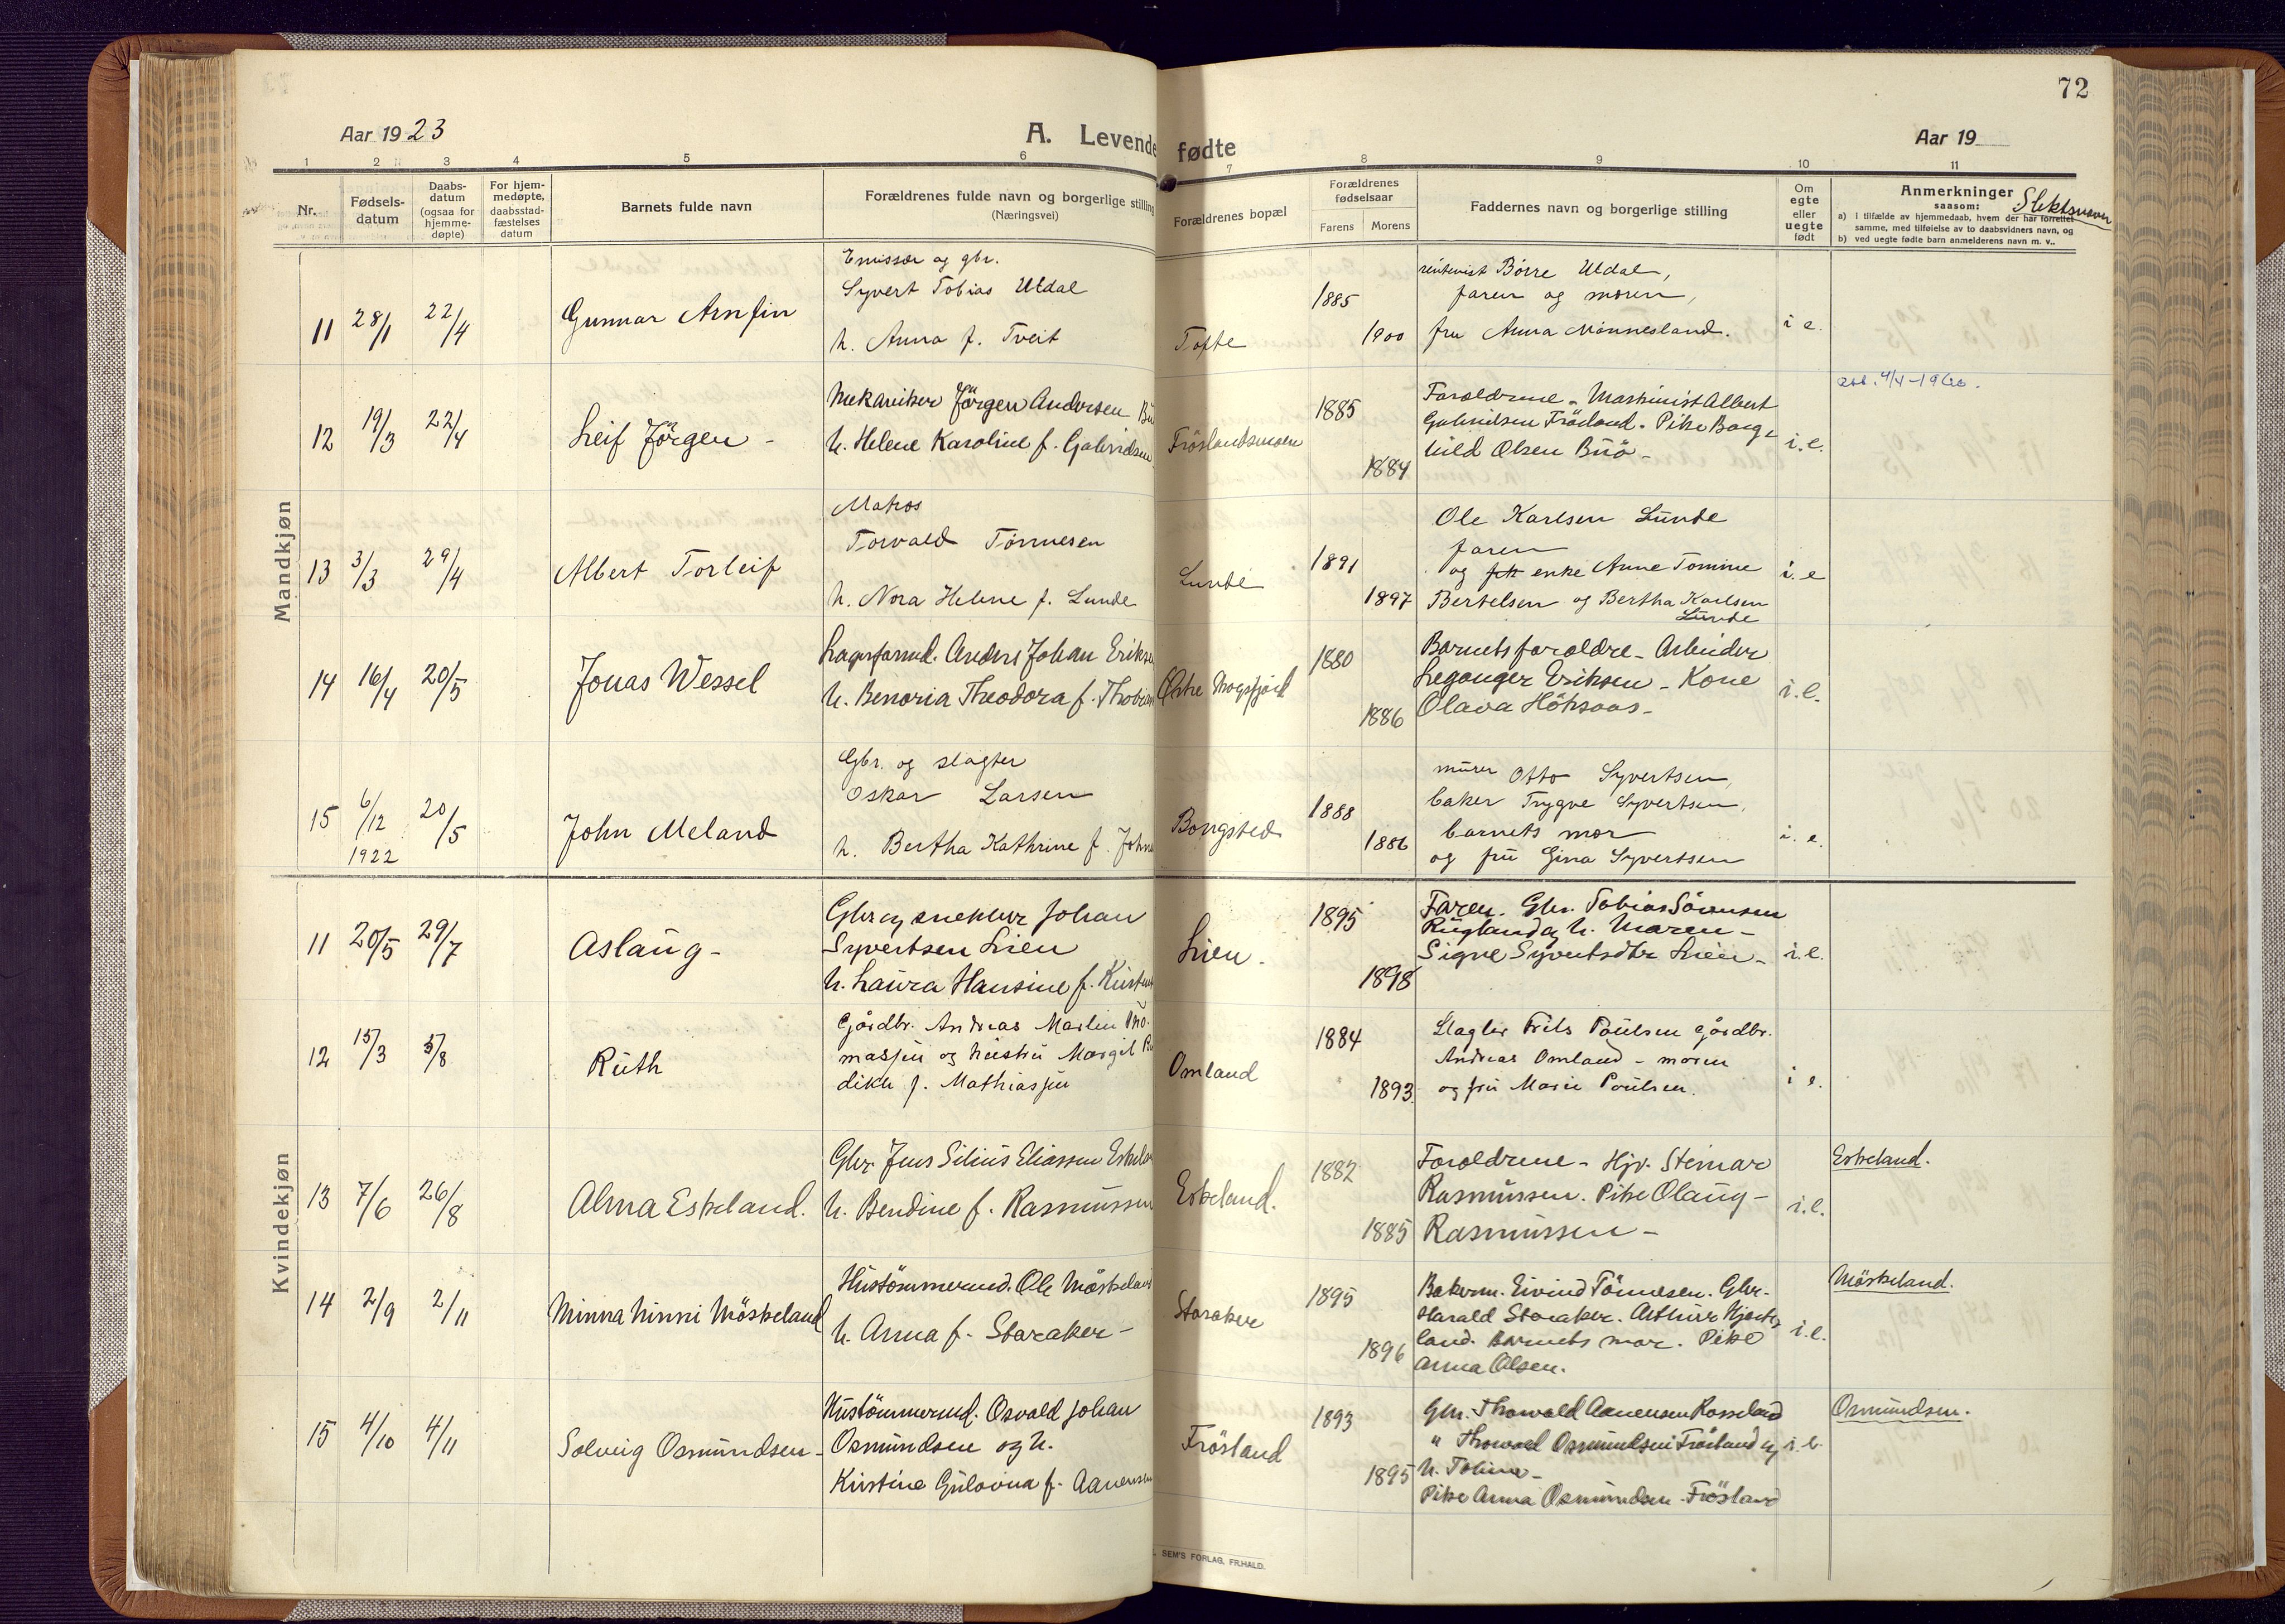 72
Aar 1923
A. Levende fødte
Aar 19
1 2 3 4 5 6 7 8 9 10 11
Nr.
Fødsels-
datum
Daabs-
datum
(ogsaa for
hjemme-
døpte)
For hjem-
medøpte,
daabsstad-
fæstelses
datum
Barnets fulde navn
Forældrenes fulde navn og borgerlige stilling
(Næringsvei)
Forældrenes bopæl
Forældrenes
fødselsaar
Farens Morens
Faddernes navn og borgerlige stilling
Om
egte
eller
uegte
født
Anmerkninger
saasom:
a) i tilfælde av hjemmedaab, hvem der har forrettet
samme, med tilføielse av to daabsvidners navn, og
b) ved uegte fødte barn anmelderens navn m. v..
Slektsnavn
Mandkjøn
11 28/1 22/4
Gunnar Arnfin
Emissær og gbr.
Syvert Tobias Uldal
h. Anna f. Tveit
Tofte
1885
1900
rentenist Börre Uldal,
faren og moren,
fru Anna Mönnesland.
i e.
12 19/3 22/4
Leif Jörgen -
Mekaniker Jörgen Andersen
h. Helene Karoline f. Gabrielsen
Fröslandsmoen
1885
1884
Foreldrene - Maskinist Albert
Gabrielsen Frösland. Pike Borg-
hild Olsen Buö -
i.e.
13 3/3 29/4
Albert Torleif
Matros
Torvald Tönnesen
h. Nora Helene f. Lunde
Lunde
1891
1897
Ole Karlsen Lunde
faren
og enke Anne Tomine
Bertelsen og Bertha Karlsen
Lunde
i. e
14 16/4 20/5
Jonas Wessel
Lagerformd. Anders Johan Eriksen
h. Benoria Theodora f.
Östre
1880
1886
Barnets foreldre - Arbeider
Leganger Eriksen - Kone
Olava Höksaas -
i.e.
15 6/12 1922 20/5
John Meland
Gbr. og slagter
Oskar Larsen
h. Bertha Kathrine f. John
Bongsted
1888
1886
murer Otto Syvertsen,
baker Trygve Syvertsen,
barnets mor
og fru Gina Syvertsen
i. e.
Kvindekjøn
11 20/5 29/7
Aslaug -
Gbr og snekker Johan
Syvertsen Lien
h. Laura Hansine f.
Lien.
1895
1898
Faren. Gbr. Tobias Sörensen
Rugland og h. Maren -
Signe Syvertsdtr Lien -
i.e.
12 15/3 5/8
Ruth
Gårdbr. Andreas Martin Tho-
massen og hustru Margit
f. Mathiassen
Omland
1884
1893.
Slagter Frits Poulsen gårdbr.
Andreas Omland - moren
og fru Marie Poulsen.
i e.
13 7/6 26/8
Alma Eskeland.
Gbr. Jens Silius Eliassen Eskeland
h. Bendine f. Rasmussen
Eskeland.
1882
1885
Foreldrene - Hjv. Steinar
Rasmussen. Pike Olaug -
Rasmussen -
i.e.
Eskeland.
14 2/9 2/11
Minna Ninni Möskeland
Hustömmermd. Ole Möskeland
h. Anna f. Staraker -
Staraker
1895
1896
Bakerm. Eivind Tönnesen. Gbr.
Harald Staraker. Arthur Hjorte-
land. Barnets mor. Pike
Anna Olsen.
i.e.
Möskeland.
15 4/10 4/11
Solveig Osmundsen -
Hustömmermd. Osvald Johan
Osmundsen og h.
Kristine Gulovna f. Aanensen
Frösland
1893
1895
Gbr. Thorvald Aanensen Rosseland
" Thorvald Osmundsen Frösland og
h. Tobine -
Pike Anna Osmundsen Frösland
i.e.
Osmundsen.
SEM'S FORLAG, FR.HALD.